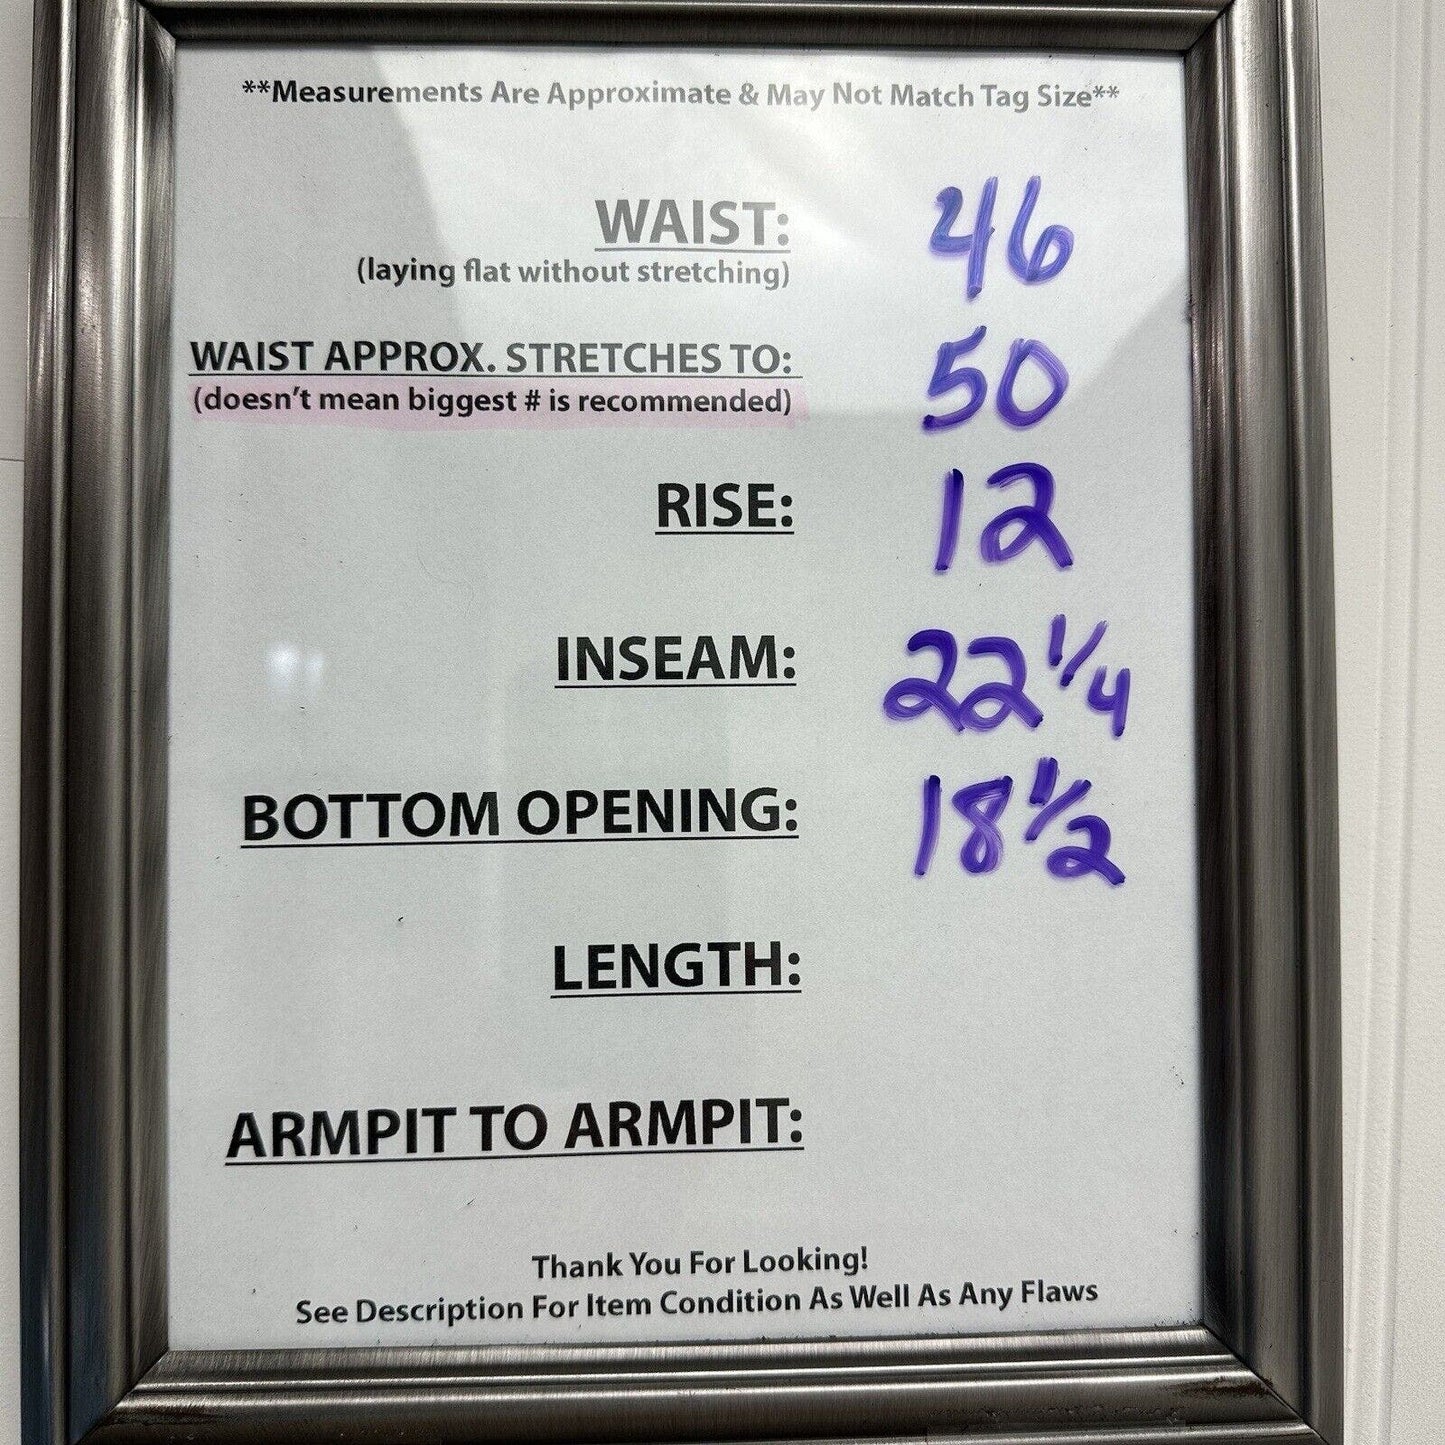 **Measurements Are Approximate & May Not Match Tag Size**
WAIST: 46
(laying flat without stretching)
WAIST APPROX. STRETCHES TO: 50
(doesn't mean biggest # is recommended)
RISE: 12
INSEAM: 22 1/4
BOTTOM OPENING: 18 1/2
LENGTH:
ARMPIT TO ARMPIT:
Thank You For Looking!
See Description For Item Condition As Well As Any Flaws